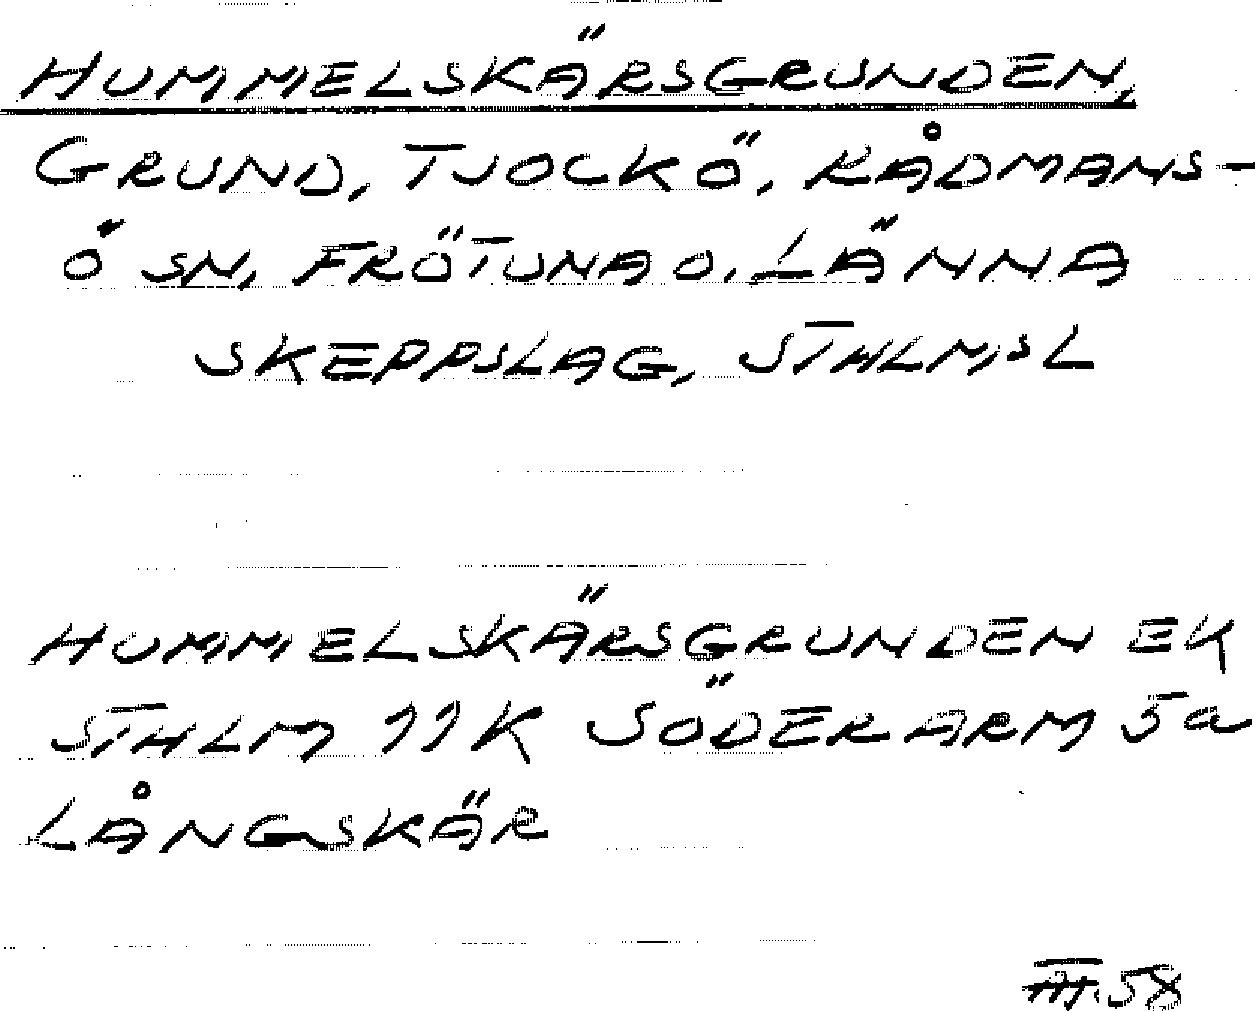 HUMMELSKÄRSGRUNDEN,
GRUND, TJOCKÖ, RÅDMANS-
Ö SN, FRÖTUNA O. LÄNNA
SKEPPSLAG, STHLMSL
HUMMELSKÄRSGRUNDEN EK
STHLM 11K SÖDERARM 5a
LÅNGSKÄR
58